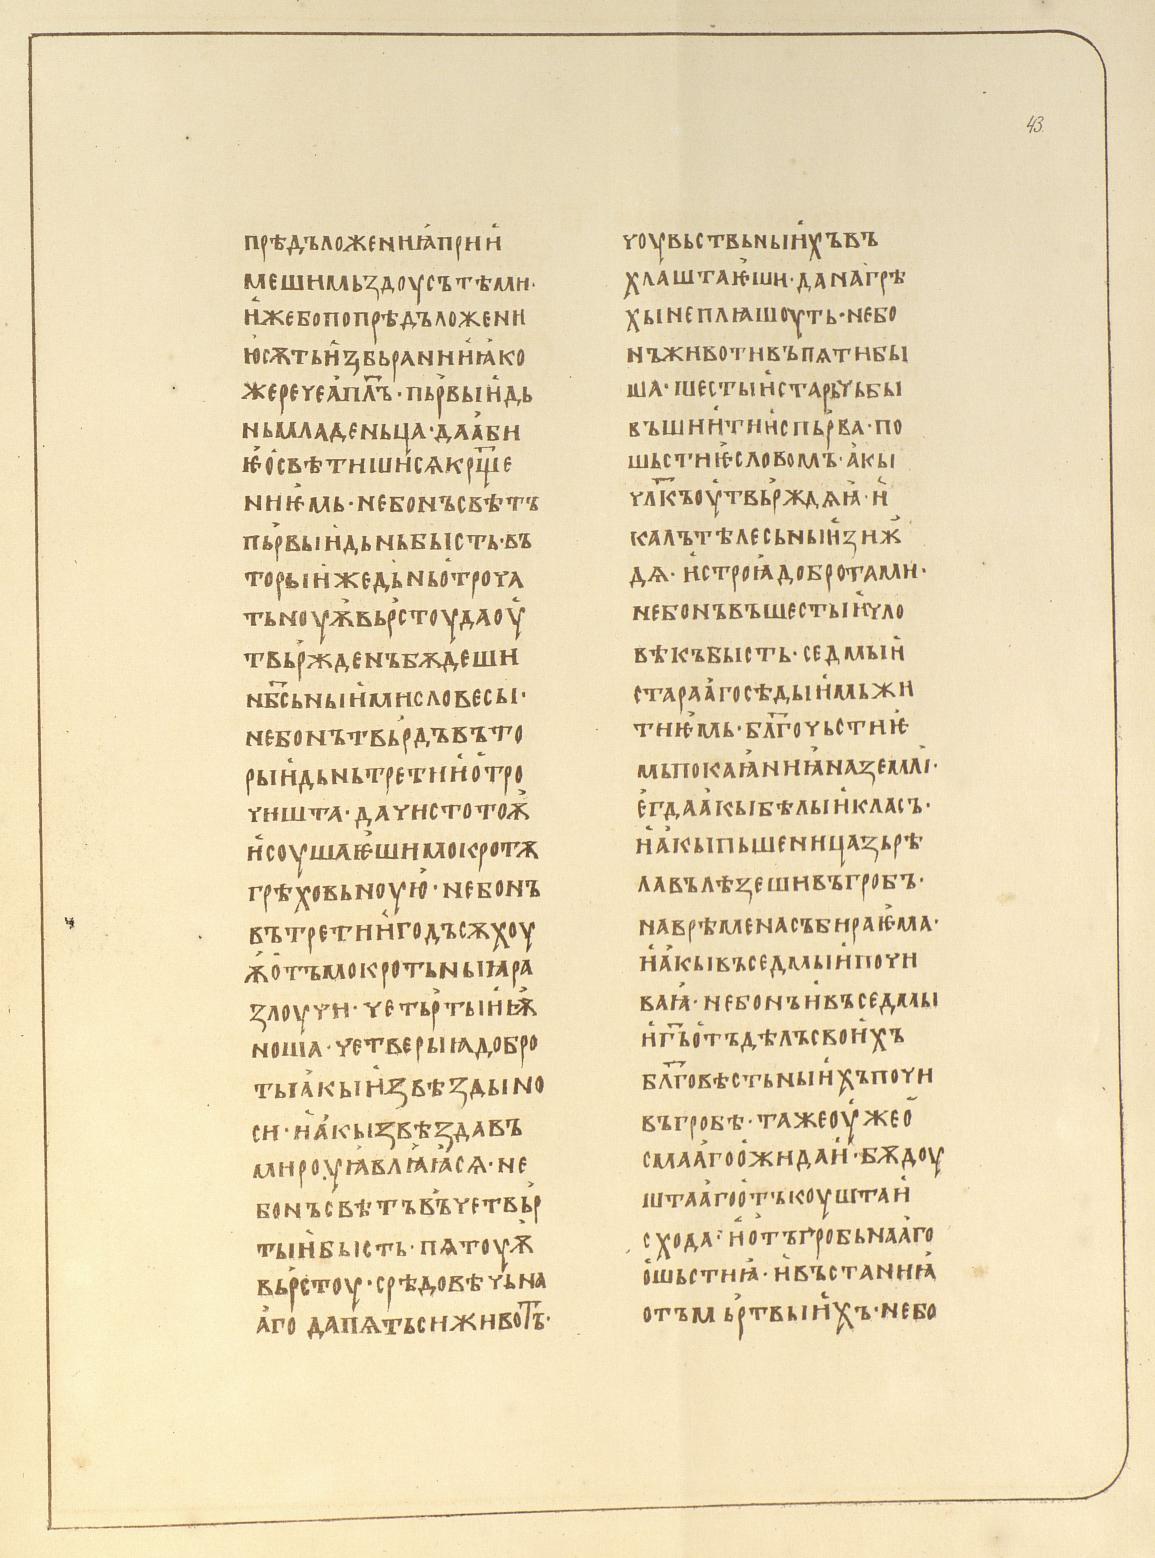 43
прѣдъложениꙗ прии
меши мьздоу съ тѣми·
иже бо по прѣдъложени
ю сѫть избьрании ꙗко
же рече апⷭ҇лъ· пьрвыи дь
нь младеньца· да аби
ѥ освѣтиши сѧ крⷳ҇ще
ниѥмь· небонъ свѣтъ
пьрвыи дьнь бысть· въ
торыи же дьнь отроча
тьноуѭ вьрстоу да оу
твьржденъ бѫдеши
нб҃сьныими словесы·
небонъ твьрдь въ вто
рыи дьнь третии отро
чишта· да чистотоѭ
исоушаѥши мокротѫ
грѣховьноую· небонъ
въ третии годъ сѫхоу
ѭ отъ мокротьныꙗ ра
злоучи· четьртыи ѭ
ноша· четверыꙗ добро
ты акы и звѣзды но
си· и акы звѣзда въ
мироу ꙗвлꙗꙗ сѧ· не
бонъ свѣтъ въ четвьр
тыи бысть· пѧтоуѭ
вьрстоу· срѣдовѣчьна
аго да пѧть си животъ·
чоувьствьныихъ въ
хлаштаѥши· да на грѣ
хы не плѩшоуть· небо
нъ животи въ пѧти бы
ша· шестыи старьчьбы
въши и ти испьрва· по
шьстиѥ словомъ· акы
чл҃къ оутвьрждѧꙗ· и
калъ тѣлесьныи зиж
дѧ· и строꙗ добротами·
небонъ въ шестыи чло
вѣкъ бысть· седмыи
стараго сѣдыимь жи
тиѥмь· бл҃гочьстиѥ
мь покаꙗниꙗ на земли·
егда акы бѣлыи класъ·
и акы пьшеница зьрѣ
ла вълѣзеши въ гробъ·
на врѣмена събираѥма·
и акы въ седмыи почи
ваꙗ· небонъ и въ седмы
и г҃ь отъ дѣлъ своихъ
бл҃говѣстьныихъ почи
въ гробѣ· таже оуже о
смааго ожидаи· бѫдоу
штааго отъкоуштаи
схода· и отъ гробьнааго
ошьстиꙗ· и въстаниꙗ
отъ мьртвыихъ· небо